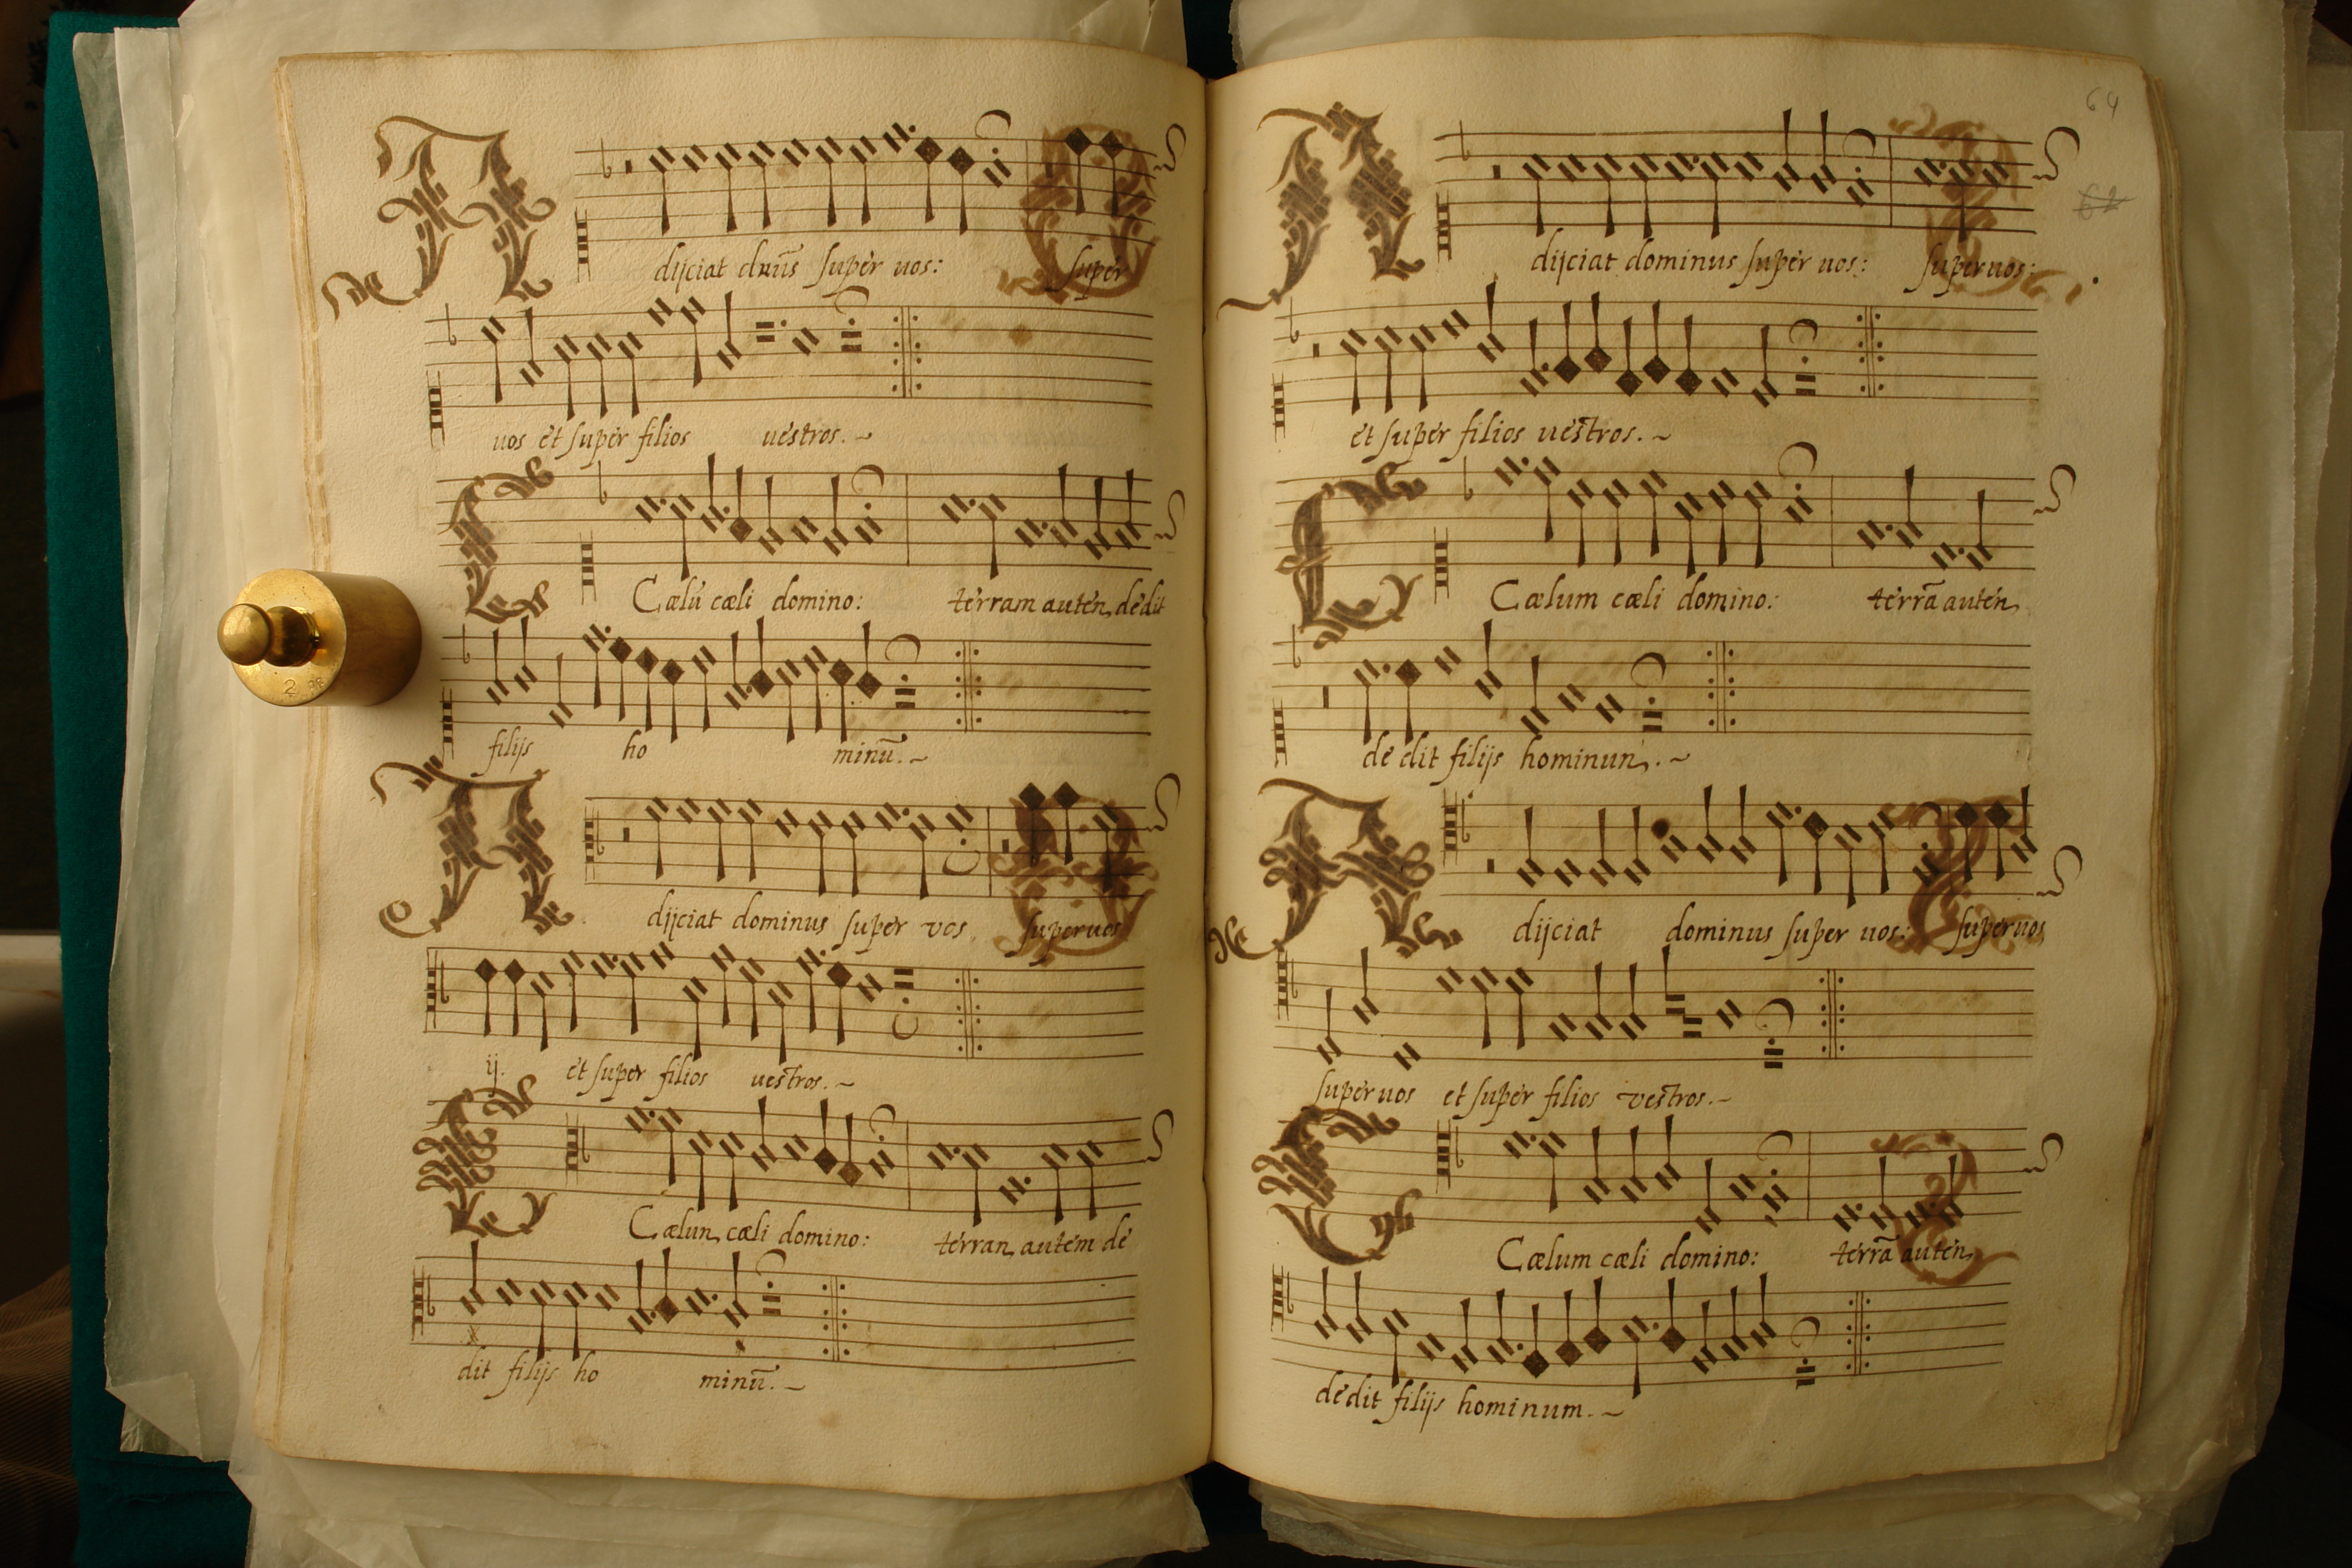 Adijciat dnũs super uos: super
uos et super filios uestros.
Cælũ cæli domino: terram auten dedit
filijs ho minũ.
Adijciat dominus super vos superuos
ij. et super filios uestros.
Cælun cæli domino: terran autem de
dit filijs ho minũ.
64
62
Adijciat dominus super uos: superuos:
et super filios uestros.
Cælum cæli domino: terrã auten
dedit filijs hominun.
Adijciat dominus super uos: superuos
super uos et super filios vestros.
Cælum cæli domino: terrã auten
dedit filijs hominum.
2